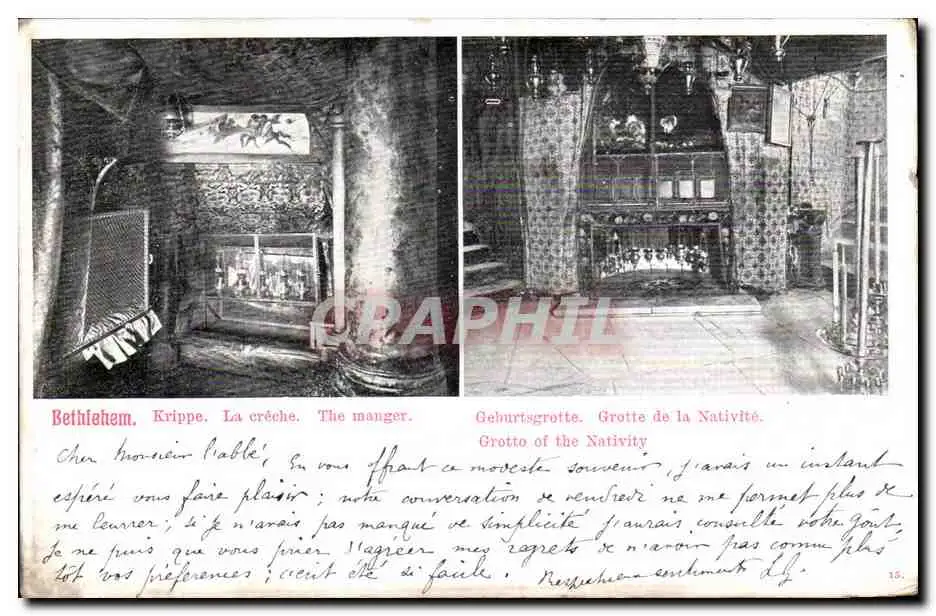 CPAPHIL
Bethlehem. Krippe. La crêche. The manger.
Geburtsgrotte. Grotte de la Nativité.
Grotto of the Nativity
Cher Monsieur l'abbé, En vous offrant ce modeste souvenir, j'avais un instant
espéré vous faire plaisir ; notre conversation de vendredi ne me permet plus de
me leurrer ; si je n'avais pas manqué de simplicité j'aurais consulté votre goût,
Je ne puis que vous prier d'agréer mes regrets de n'avoir pas connu plus
tôt vos préférences ; c'eut été si facile. Respectueux sentiments
15.